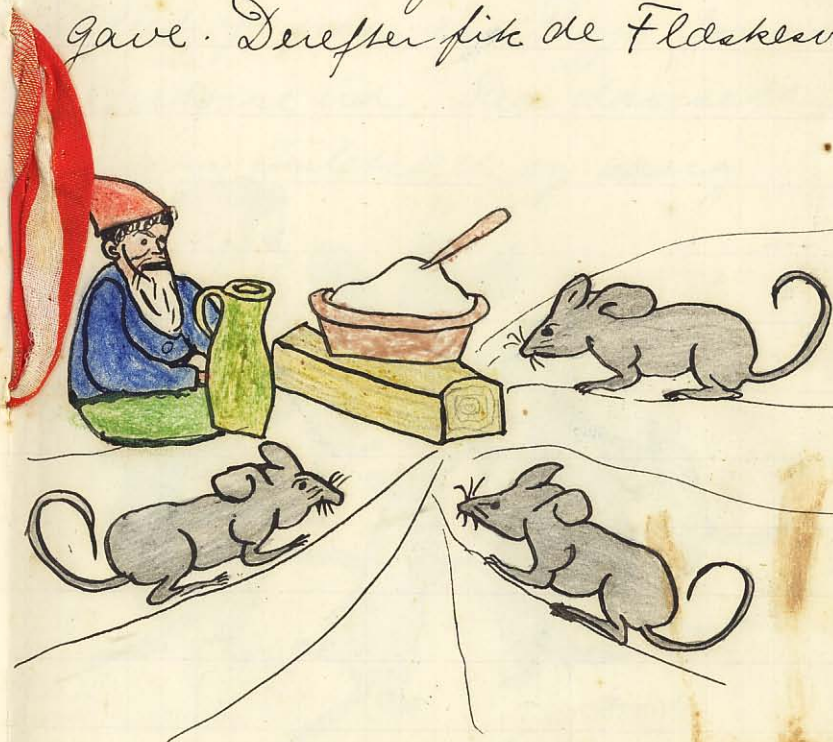 gave. Derefter fik de Flæskesv